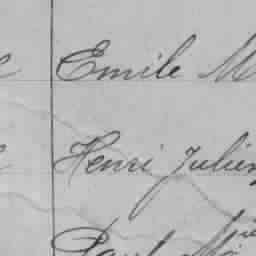 Emile
Henri Julien
Paul